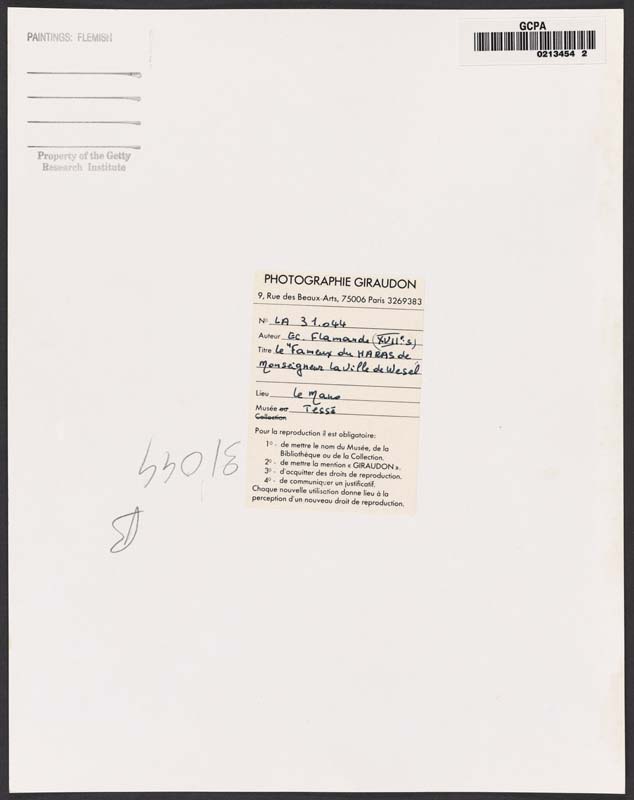 PAINTINGS: FLEMISH
GCPA
0213454 2
Property of the Getty
Research Institute
PHOTOGRAPHIE GIRAUDON
9, Rue des Beaux-Arts, 75006 Paris 3269383
N° LA 31.044
Auteur Ec. Flamande (XVIIe s)
Titre Le "Fameux du HARAS de
Monseigneur la Ville de Wesel
Lieu Le Mans
Musée ou Tessé
Collection
Pour la reproduction il est obligatoire:
1° - de mettre le nom du Musée, de la
Bibliothèque ou de la Collection.
2° - de mettre la mention « GIRAUDON ».
3° - d'acquitter des droits de reproduction.
4° - de communiquer un justificatif.
Chaque nouvelle utilisation donne lieu à la
perception d'un nouveau droit de reproduction.
31044